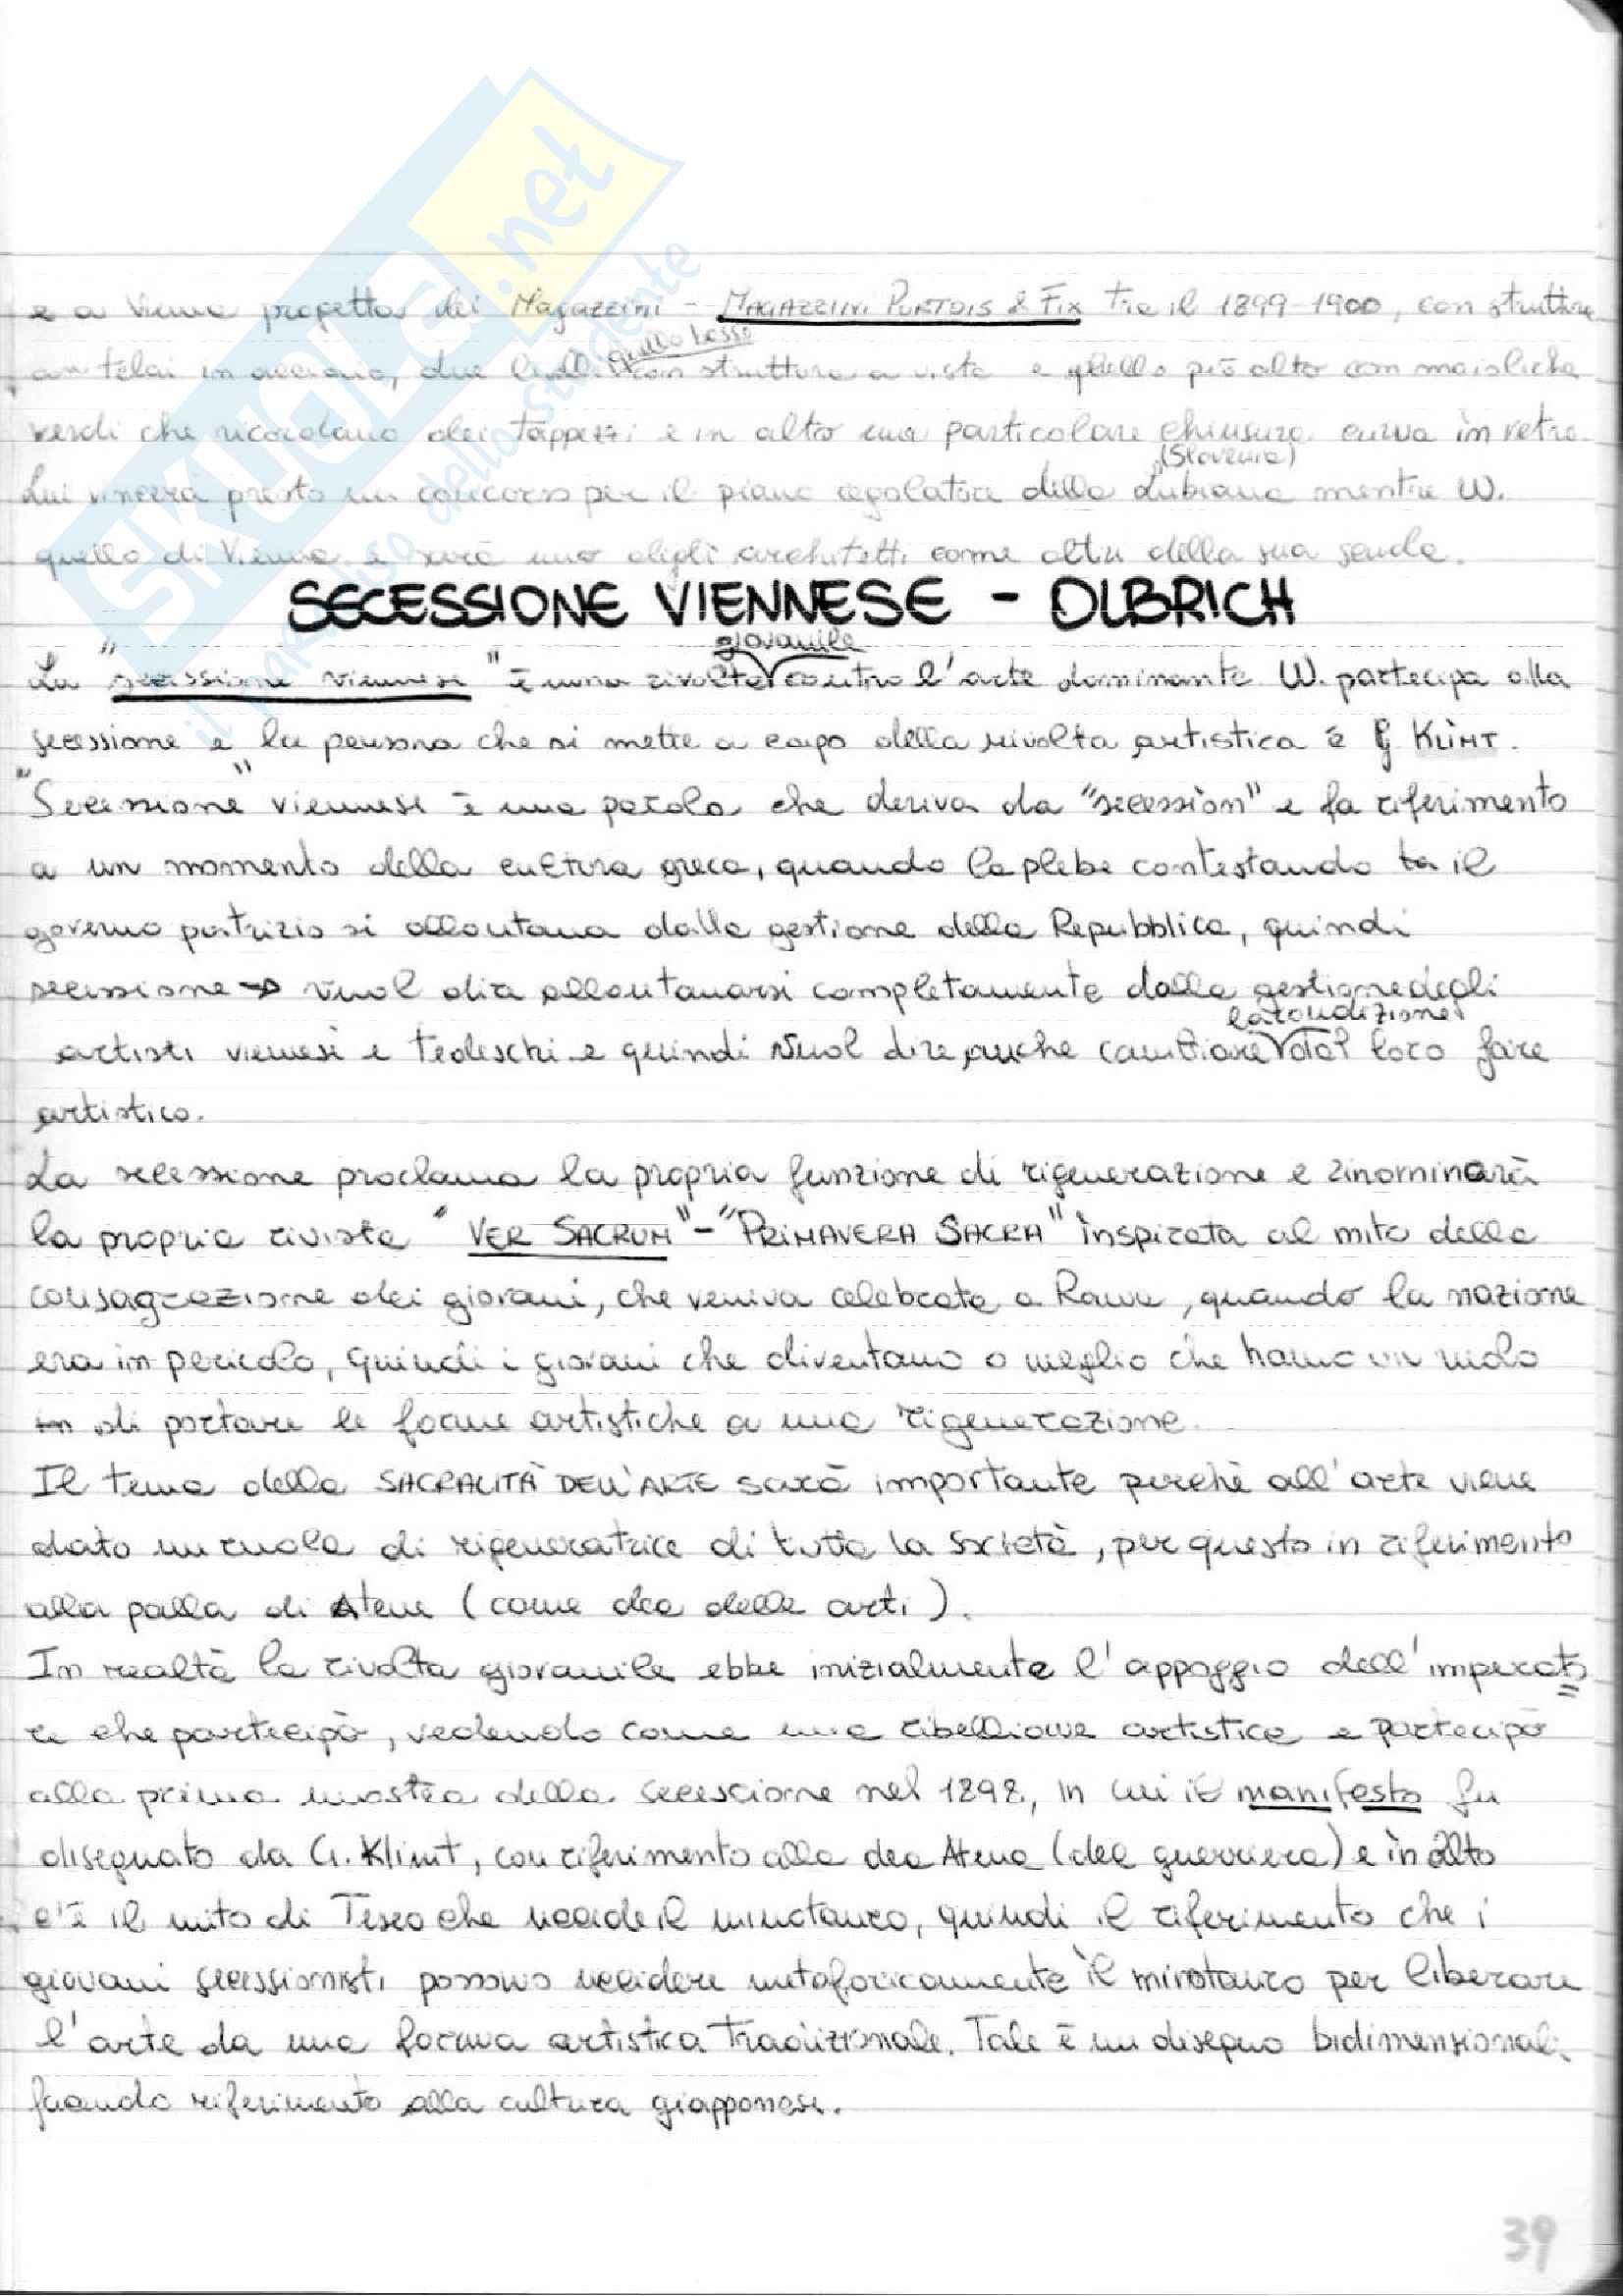 SKUOLA.net
il paradiso dello studente
e a Vienna progetta dei Magazzini - MAGAZZINI PORTOIS & FIX tra il 1899-1900, con strutture
a telai in acciaio, due livelli quello basso con struttura a vista e quello più alto con maioliche
verdi che ricordano dei tappezzi e in alto una particolare chiusura curva in vetro.
Lui vincerà presto un concorso per il piano regolatore della Lubiana (Slovenia) mentre W.
quello di Vienna e sarà uno degli architetti come altri della sua scuola.
SECESSIONE VIENNESE - OLBRICH
La "secessione viennese" è una rivolta giovanile contro l'arte dominante W. partecipa alla
secessione e la persona che si mette a capo della rivolta artistica è G KLIMT.
"Secessione" viennese è una parola che deriva da "secession" e fa riferimento
a un momento della cultura greca, quando la plebe contestando il
governo patrizio si allontana dalla gestione della Repubblica, quindi
secessione → vuol dire allontanarsi completamente dalla gestione degli
artisti viennesi e tedeschi e quindi vuol dire anche cambiare la condizione del loro fare
artistico.
La secessione proclama la propria funzione di rigenerazione e rinominarà
la propria rivista "VER SACRUM" - "PRIMAVERA SACRA" inspirata al mito della
consagrazione dei giovani, che veniva celebrata a Roma, quando la nazione
era in pericolo, quindi i giovani che diventano o meglio che hanno un ruolo
di portare le forme artistiche a una rigenerazione.
Il tema della SACRALITÀ DELL'ARTE sarà importante perchè all'arte viene
dato un ruolo di rigeneratrice di tutta la società, per questo in riferimento
alla palla di Atena (come dea delle arti).
In realtà la rivolta giovanile ebbe inizialmente l'appoggio dell'imperato=
re che partecipò, vedendo come una ribellione artistica e partecipò
alla prima mostra della secessione nel 1898, in cui il manifesto fu
disegnato da G. Klimt, con riferimento alla dea Atena (dea guerriera) e in alto
c'è il mito di Teseo che uccide il minotauro, quindi il riferimento che i
giovani secessionisti possono uccidere metaforicamente il minotauro per liberare
l'arte da una forma artistica tradizionale. Tale è un disegno bidimensionale
facendo riferimento alla cultura giapponese.
39